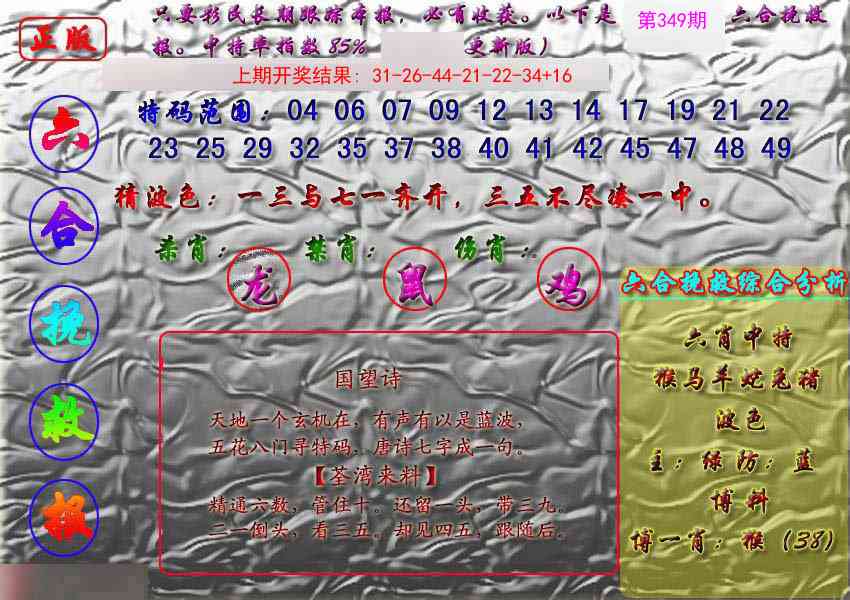 正版
只要彩民长期跟踪本报，必有收获。以下是
第349期
六合挽救
报。中特率指数85%
更新版）
上期开奖结果: 31-26-44-21-22-34+16
特码范围：04 06 07 09 12 13 14 17 19 21 22
23 25 29 32 35 37 38 40 41 42 45 47 48 49
六合挽救报
猜波色：一三与七一齐开，三五不尽凑一中。
杀肖：龙 禁肖：鼠 伤肖：鸡
国望诗
天地一个玄机在，有声有以是蓝波，
五花八门寻特码．唐诗七字成一句。
【荃湾来料】
精通六数，管住十。还留一头，带三九。
二一倒头，看三五。却见四五，跟随后。
六合挽救综合分析
六肖中特
猴马羊蛇兔猪
波色
主：绿防：蓝
博料
博一肖：猴（38）